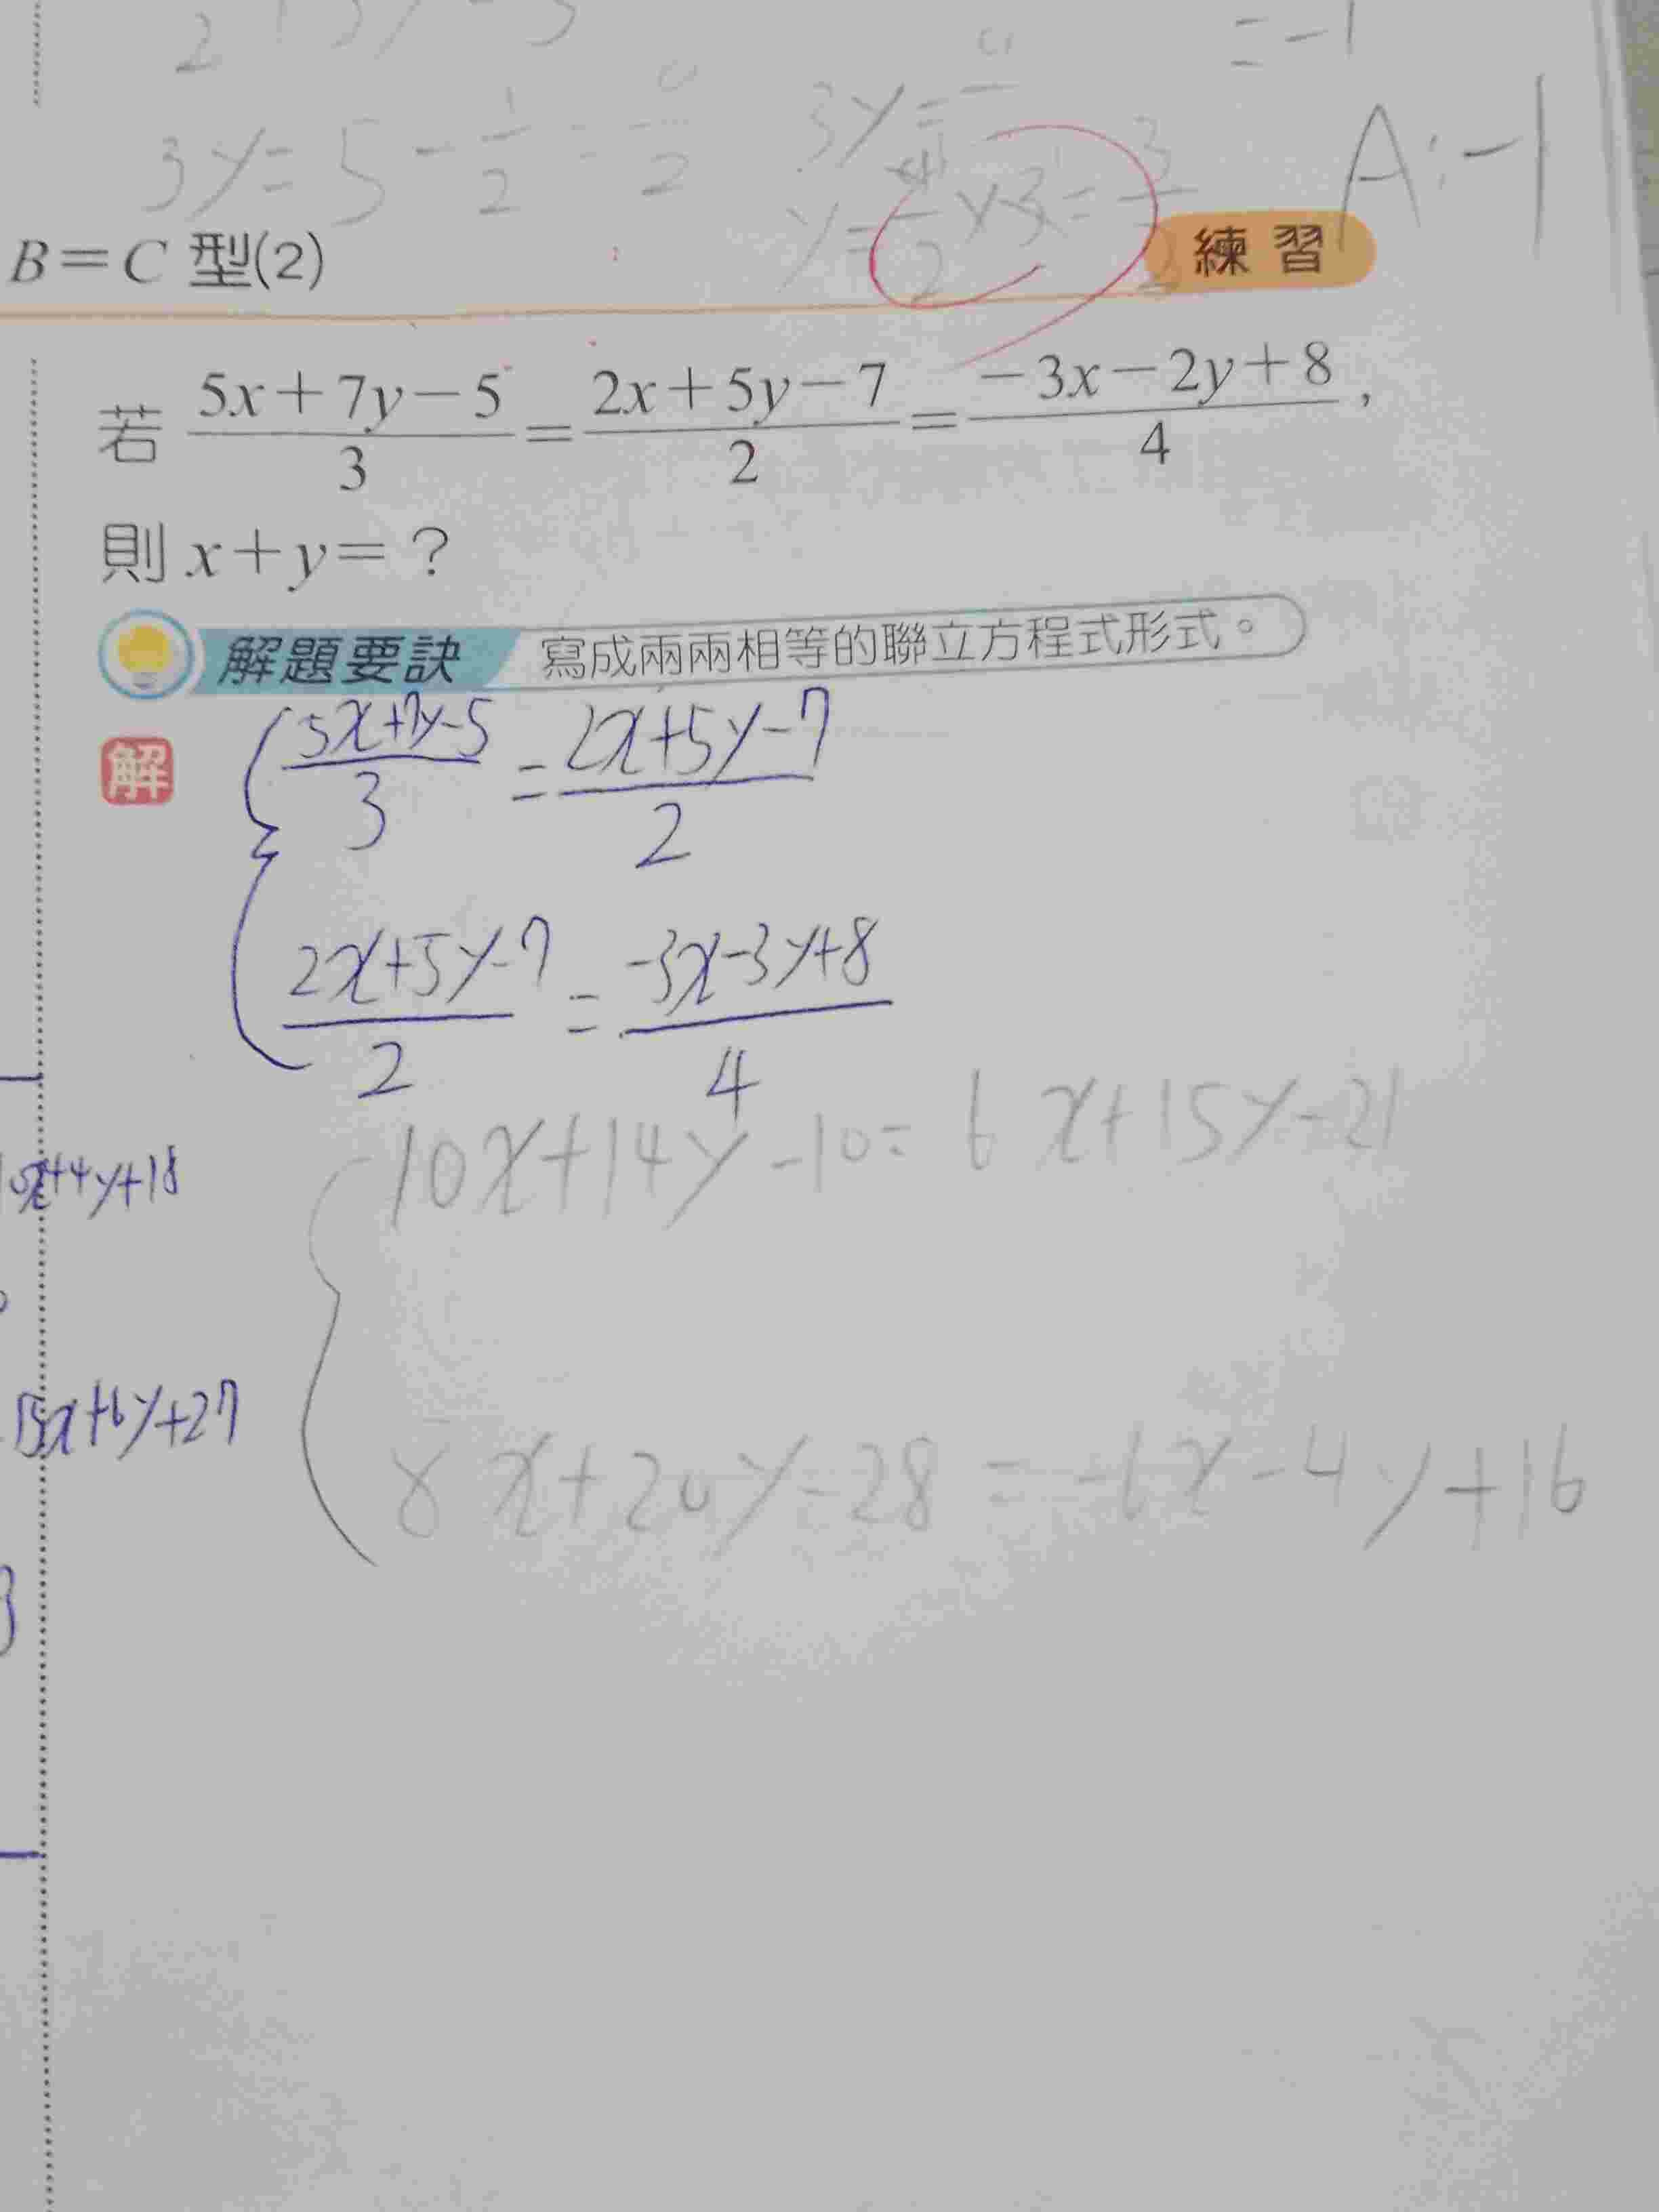 = -1
3y = 5 - 1/2 =
3y =
A: -1
B=C 型(2)
練習
若 (5x+7y-5)/3 = (2x+5y-7)/2 = (-3x-2y+8)/4 ,
則 x+y= ?
解題要訣 寫成兩兩相等的聯立方程式形式。
解
{ (5x+7y-5)/3 = (2x+5y-7)/2
(2x+5y-7)/2 = (-3x-3y+8)/4
{ 10x+14y-10= 6x+15y-21
x+4y+18
8x+20y-28 = -6x-4y+16
15x+6y+27